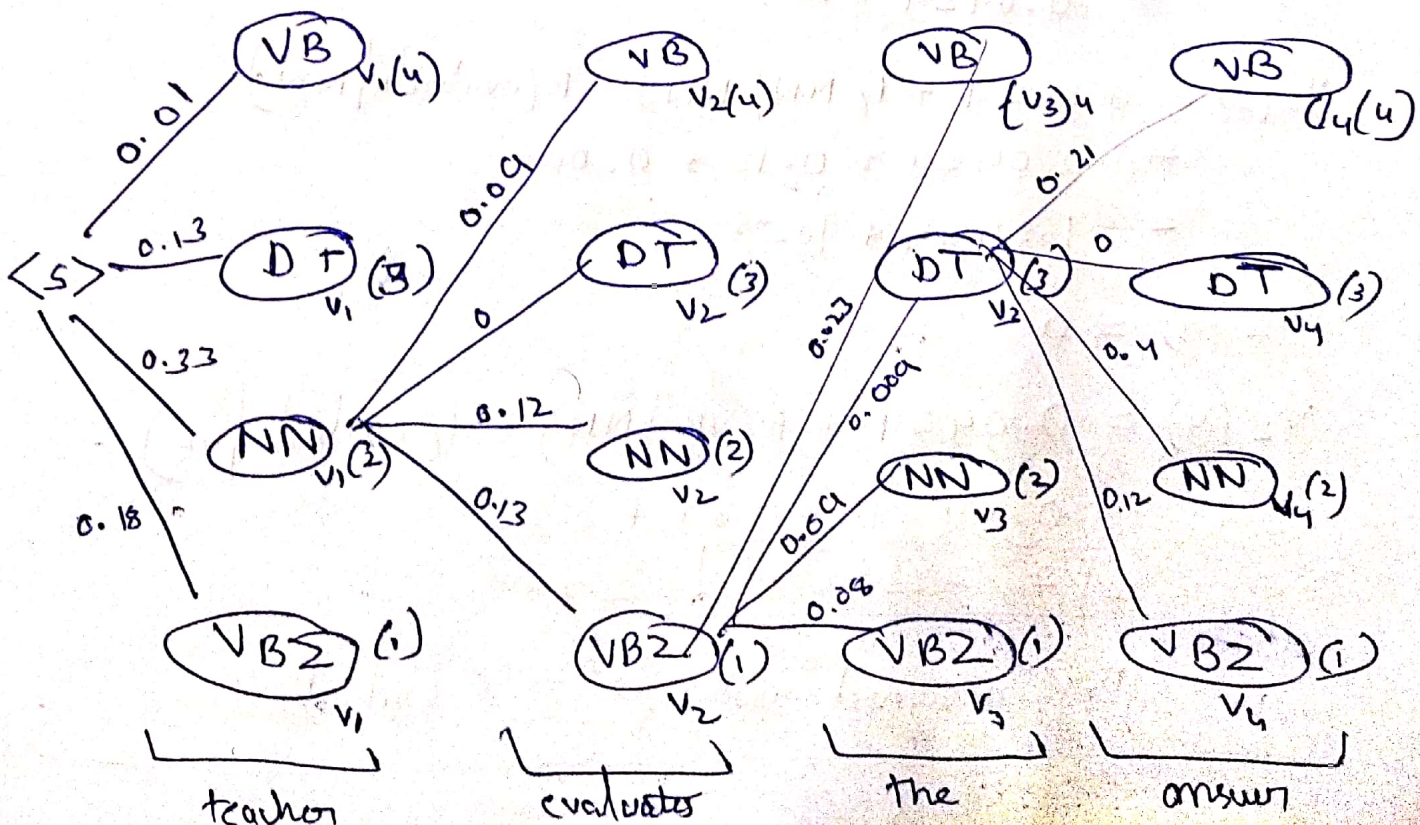 VB V₁(4)
VB V₂(4)
VB {V₃)4
VB V₄(4)
0.01
0.09
0.21
<S>
0.13
DT V₁ (3)
DT V₂ (3)
DT V₃ (3)
0
DT V₄ (3)
0
0.023
0.009
0.4
0.33
0.12
NN V₁(2)
NN V₂ (2)
NN V₃ (2)
NN V₄(2)
0.18
0.13
0.09
0.12
0.08
VBZ V₁ (1)
VBZ V₂ (1)
VBZ V₃ (1)
VBZ V₄ (1)
teacher
the